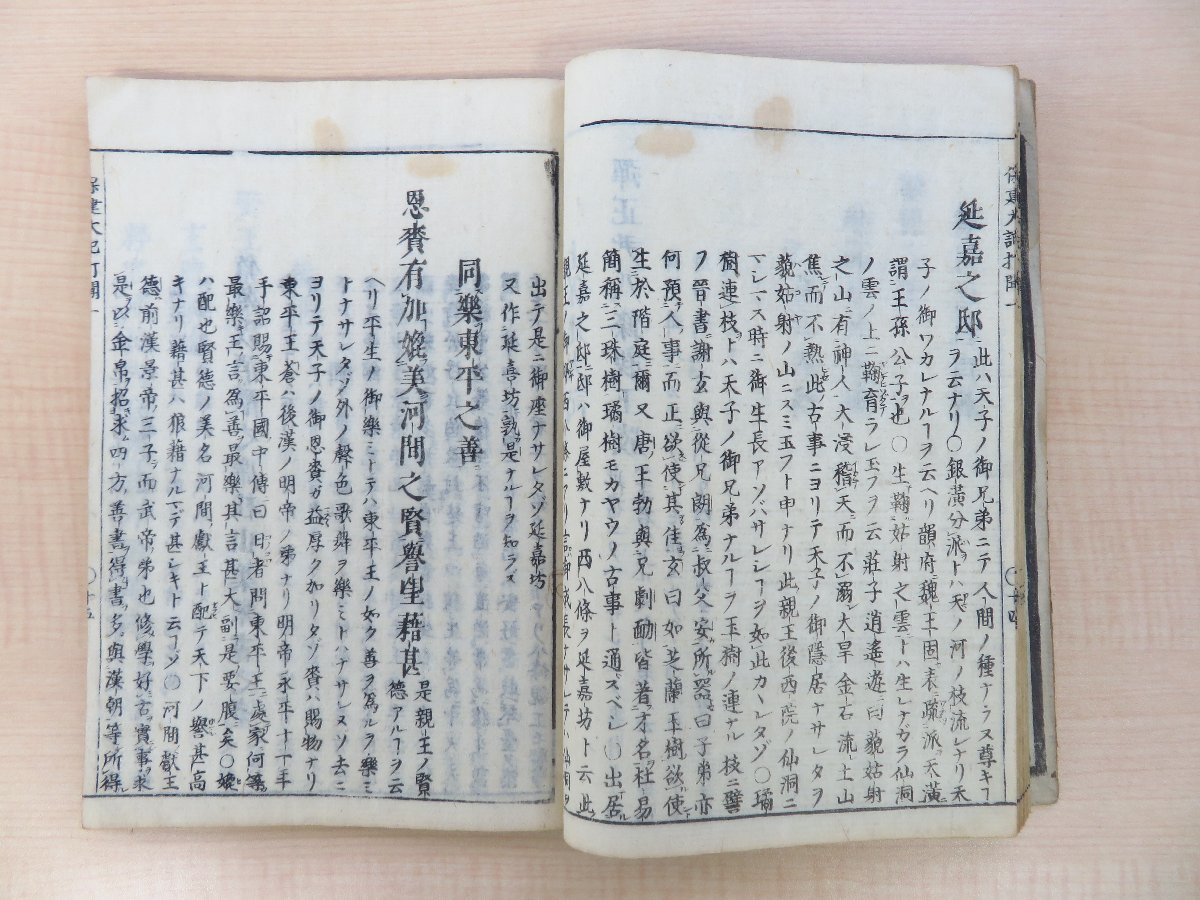 保建大記打聞一
延嘉之邸 此ハ天子ノ御兄弟ニテ人間ノ種ナラス尊キ
子ノ御ワカレナルヿヲ云ヘリ韻府魏王固表疏派天潢
ラ云ナリ○銀潢分派トハ天ノ河ノ枝流レナリ天
謂王孫公子也○生鞠姑射之雲トハ生レナガラ仙洞
ノ雲ノ上ニ鞠育ラレ玉フヲ云荘子逍遙遊曰藐姑射
之山有神人大浸稽天而不溺大旱金石流土山
焦而不熱此古事ニヨリテ天子ノ御隠居ナサレタヲ
藐姑射ノ山ニスミ玉フト申ナリ此親王後西院ノ仙洞ニ
マシマス時ニ御生長アソバサレシヿヲ如此カヽレタゾ○璚
樹連枝トハ天子ノ御兄弟ナルヿヲ玉樹ノ連ナル枝ニ譬
フ晉書謝玄與從兄朗為叔父安所器曰子弟亦
何預人事而正欲使其佳玄曰如芝蘭玉樹欲使
生於階庭爾又唐王勃與兄劇勔皆著才名杜易
簡稱三珠樹璚樹モカヤウノ古事ト通ズベシ○出居
延嘉之邸邸ハ御屋敷ナリ西八條ヲ延嘉坊ト云此
出テ是ニ御座ナサレタゾ延嘉坊
又作延喜坊孰是ナルヿヲ知ラズ
同樂東平之善
恩賚有加婉美河間之賢譽聖藉甚 是親王ノ賢
德アルヿヲ云
ヘリ平生ノ御樂ミトテハ東平王ノ如ク善ヲ為ルヲ樂ミ
トナサレタゾ外ノ聲色歌舞ヲ樂ミトハナサレヌソ去ニ
ヨリテ天子ノ御恩賚ガ益厚ク加リタゾ賚ハ賜物ナリ
東平王蒼ハ後漢ノ明帝ノ弟ナリ明帝永平十一年
手詔賜東平國中傅曰日者問東平王處家何等
最樂王言為善最樂其言甚大副是要腹矣○婉
ハ配也賢德ノ美名河間獻王ト配テ天下ノ譽甚高
キナリ藉甚ハ狼藉ナルマデ甚シキト云ヿゾ○河間獻王
德前漢景帝三子而武帝弟也修學好古實事求
是以金帛招求四方善書得書多與漢朝等所得
保建大記打聞一